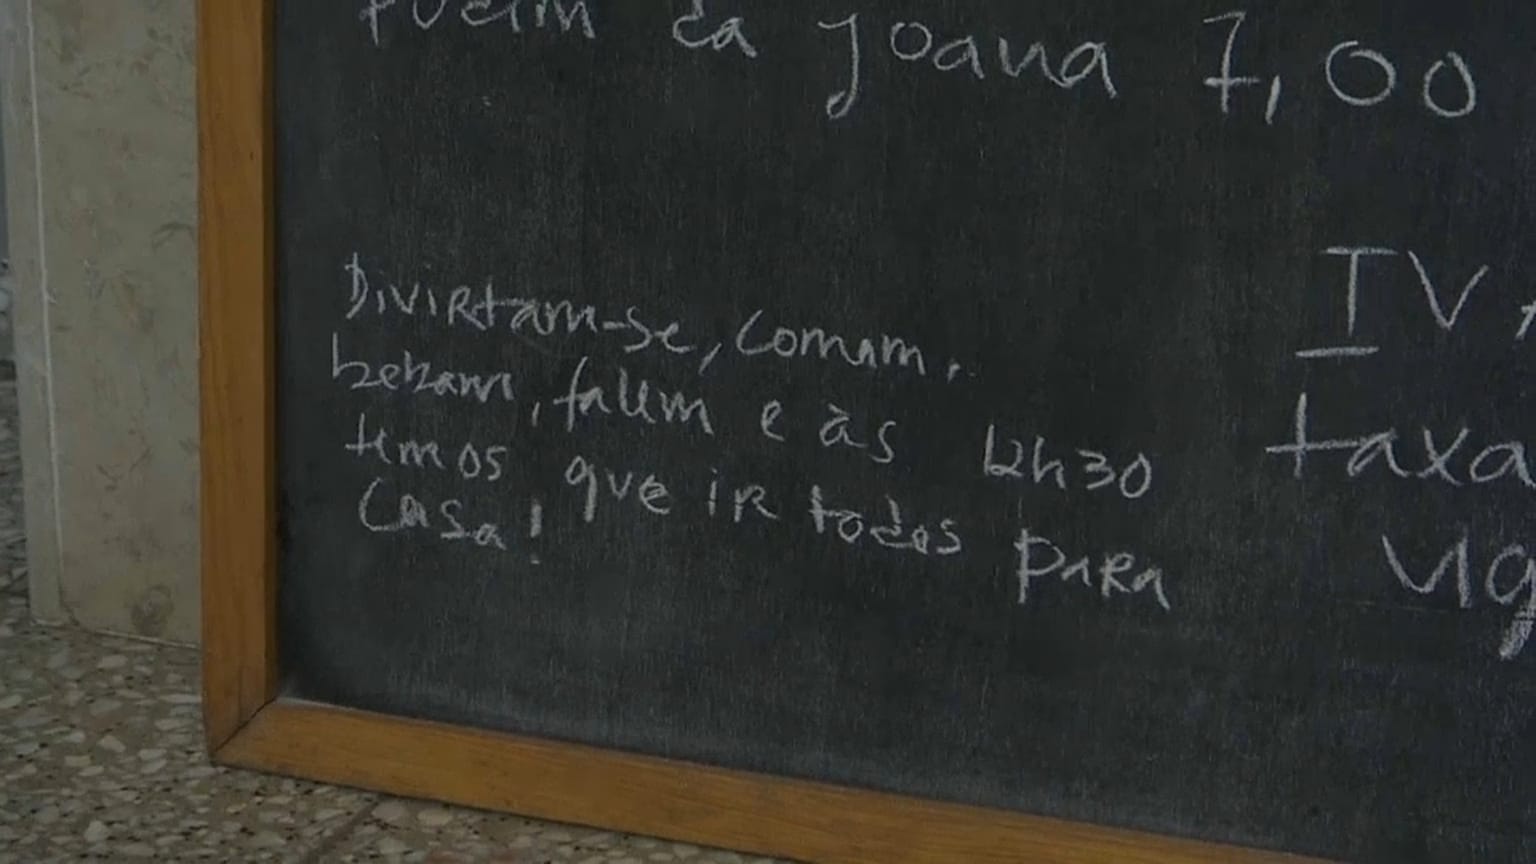 Pudim da Joana 7,00
Divirtam-se, comam,
bebam, falem e às 12h30
temos que ir todos para
casa!
IV
taxa
vig